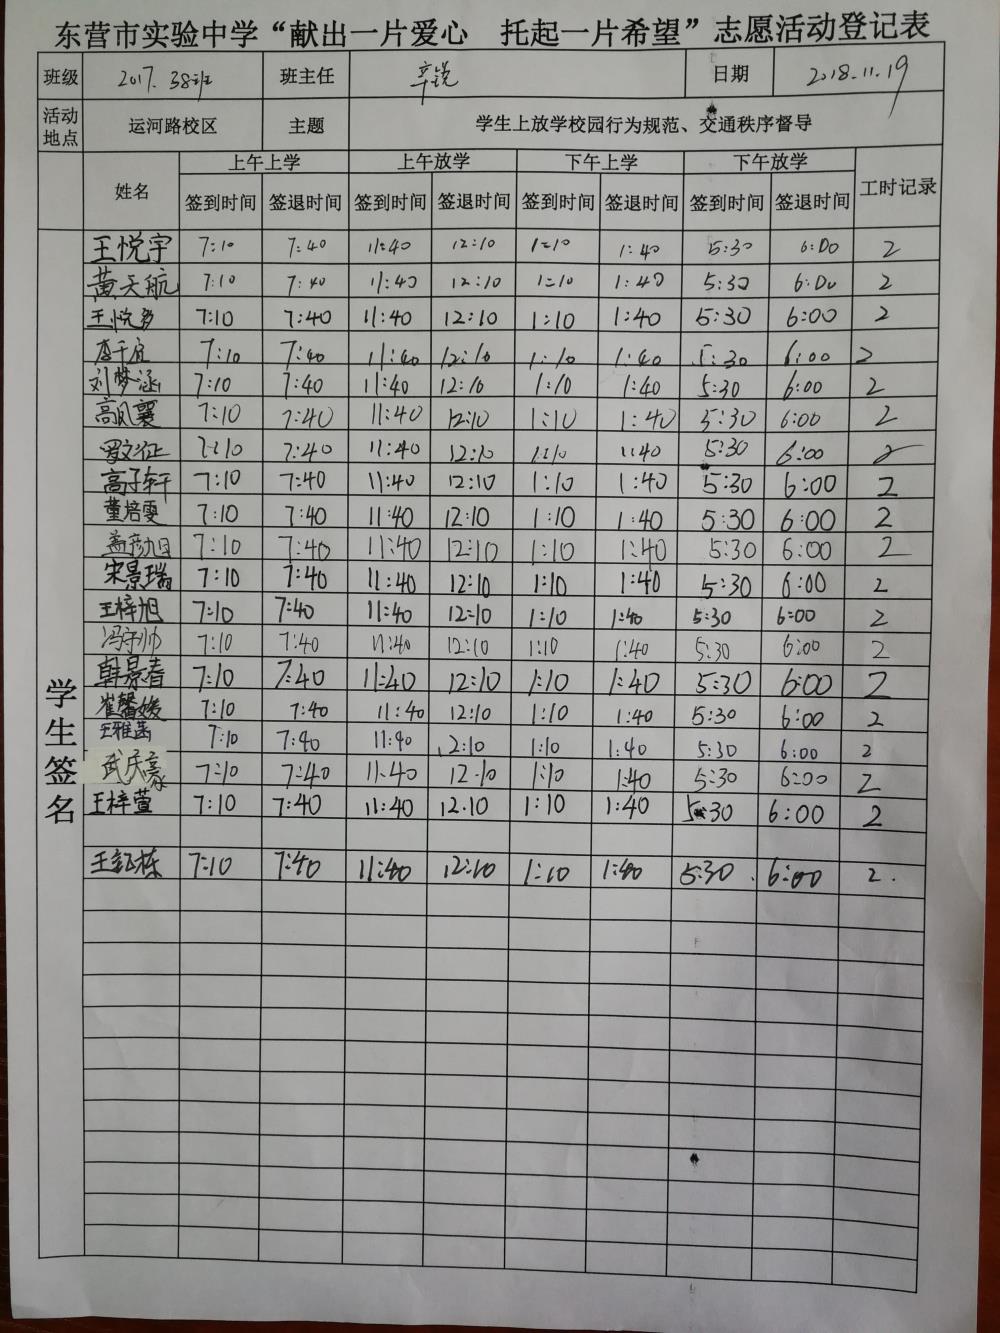 东营市实验中学“献出一片爱心 托起一片希望”志愿活动登记表
班级 2017.38班 班主任 辛锐 日期 2018.11.19
活动地点 运河路校区 主题 学生上放学校园行为规范、交通秩序督导
姓名 上午上学 上午放学 下午上学 下午放学 工时记录
签到时间 签退时间 签到时间 签退时间 签到时间 签退时间 签到时间 签退时间
学生签名
王悦宇 7:10 7:40 11:40 12:10 1:10 1:40 5:30 6:00 2
黄天航 7:10 7:40 11:40 12:10 1:10 1:40 5:30 6:00 2
王悦多 7:10 7:40 11:40 12:10 1:10 1:40 5:30 6:00 2
7:10 7:40 11:40 12:10 1:10 1:40 5:30 6:00 2
刘梦涵 7:10 7:40 11:40 12:10 1:10 1:40 5:30 6:00 2
高凤襄 7:10 7:40 11:40 12:10 1:10 1:40 5:30 6:00 2
7:10 7:40 11:40 12:10 1:10 1:40 5:30 6:00 2
高子轩 7:10 7:40 11:40 12:10 1:10 1:40 5:30 6:00 2
董培雯 7:10 7:40 11:40 12:10 1:10 1:40 5:30 6:00 2
7:10 7:40 11:40 12:10 1:10 1:40 5:30 6:00 2
宋景瑞 7:10 7:40 11:40 12:10 1:10 1:40 5:30 6:00 2
王梓旭 7:10 7:40 11:40 12:10 1:10 1:40 5:30 6:00 2
冯宇帅 7:10 7:40 11:40 12:10 1:10 1:40 5:30 6:00 2
韩景春 7:10 7:40 11:40 12:10 1:10 1:40 5:30 6:00 2
崔馨媛 7:10 7:40 11:40 12:10 1:10 1:40 5:30 6:00 2
王雅菡 7:10 7:40 11:40 12:10 1:10 1:40 5:30 6:00 2
武庆豪 7:10 7:40 11:40 12:10 1:10 1:40 5:30 6:00 2
王梓萱 7:10 7:40 11:40 12:10 1:10 1:40 5:30 6:00 2
王钰栋 7:10 7:40 11:40 12:10 1:10 1:40 5:30 6:00 2